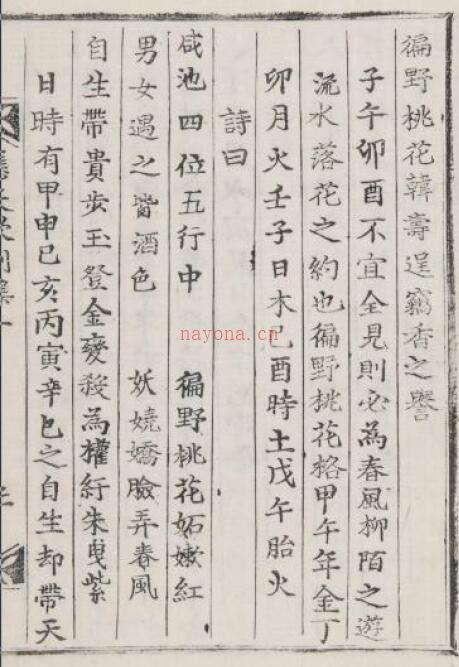 徧野桃花韓壽逞竊香之譽
子午卯酉不宜全見則必為春風柳陌之遊
流水落花之約也徧野桃花格甲午年金丁
卯月火壬子日木己酉時土戊午胎火
詩曰
咸池四位五行中　徧野桃花妬嫩紅
男女遇之皆酒色　妖嬈嬌臉弄春風
自生帶貴步玉登金變殺為權紆朱曳紫
日時有甲申己亥丙寅辛巳之自生却帶天
nayona.cn